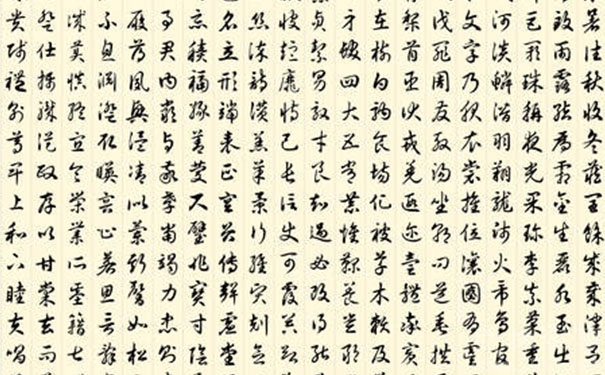 暑往秋收冬藏閏餘成歲律呂
致雨露結為霜金生麗水玉出
巨闕珠稱夜光果珍李柰菜重
河淡鱗潛羽翔龍師火帝鳥官
文字乃服衣裳推位讓國有虞
伐罪周發殷湯坐朝問道垂拱
黎首臣伏戎羌遐邇壹體率賓
在樹白駒食場化被草木賴及
身髮四大五常恭惟鞠養豈敢
貞絜男效才良知過必改得能
彼短靡恃己長信使可覆器欲
絲染詩讚羔羊景行維賢剋念
名立形端表正空谷傳聲虛堂
惡積福緣善慶尺璧非寶寸陰
事君曰嚴與敬孝當竭力忠則
履薄夙興溫凊似蘭斯馨如松
不息淵澄取映容止若思言辭
誠美慎終宜令榮業所基籍甚
登仕攝職從政存以甘棠去而
貴賤禮別尊卑上和下睦夫唱